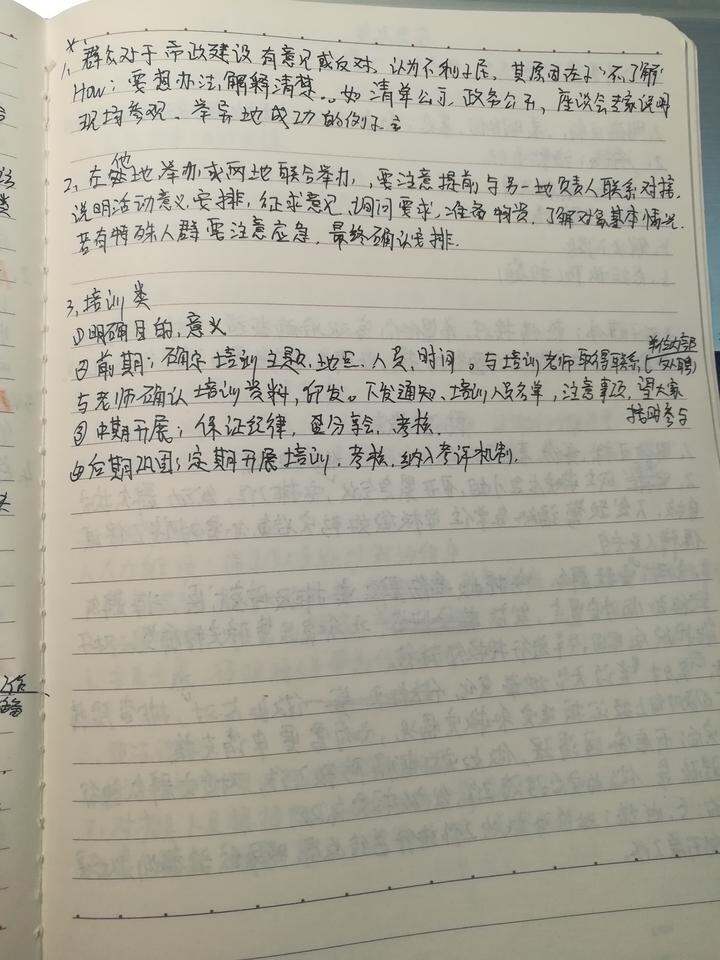 1. 群众对于市政建设有意见或反对,认为不利于民,其原因在于"不了解"
How:要想办法解释清楚。如清单公示,政务公开,座谈会专家说明
现场参观、举异地成功的例子
2. 在他地举办或两地联合举办,要注意提前与另一地负责人联系对接,
说明活动意义、安排,征求意见、询问要求,准备物资,了解对象基本情况.
若有特殊人群要注意应急,最终确认安排.
3. 培训类
①明确目的、意义
②前期:确定培训主题、地点、人员、时间。与培训老师取得联系(单位内部/外聘)
与老师确认培训资料,印发。下发通知、培训人员名单,注意事项,望大家
按时参与
③中期开展:保证纪律,分享会、考核.
④后期巩固:定期开展培训、考核.纳入考评机制.